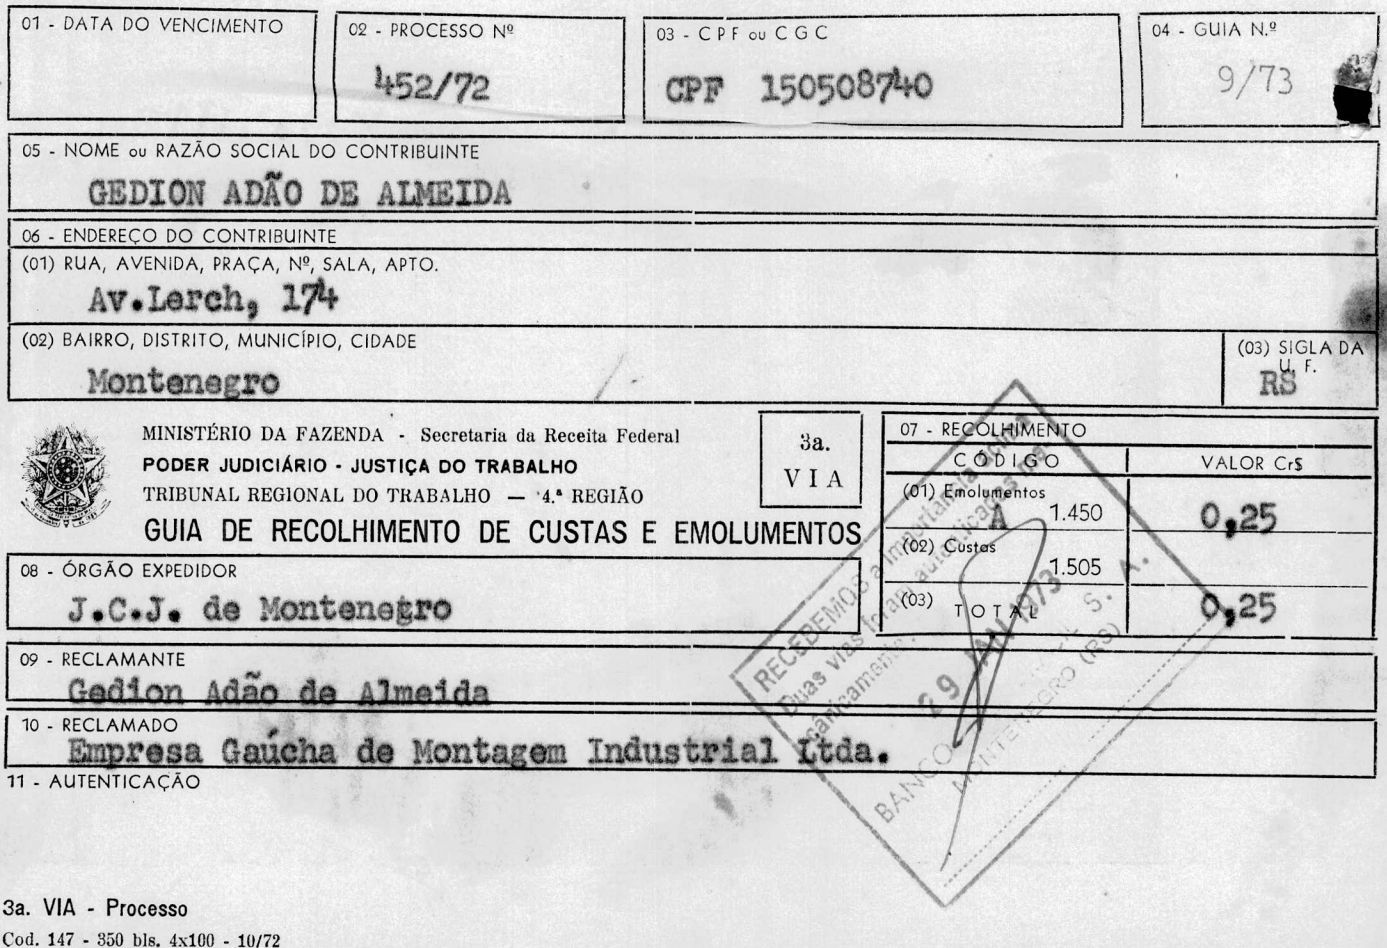 01 - DATA DO VENCIMENTO
02 - PROCESSO Nº
452/72
03 - CPF ou CGC
CPF 150508740
04 - GUIA N.º
9/73
05 - NOME ou RAZÃO SOCIAL DO CONTRIBUINTE
GEDION ADÃO DE ALMEIDA
06 - ENDEREÇO DO CONTRIBUINTE
(01) RUA, AVENIDA, PRAÇA, Nº, SALA, APTO.
Av.Lerch, 174
(02) BAIRRO, DISTRITO, MUNICÍPIO, CIDADE
Montenegro
(03) SIGLA DA
U. F.
RS
MINISTÉRIO DA FAZENDA - Secretaria da Receita Federal
PODER JUDICIÁRIO - JUSTIÇA DO TRABALHO
TRIBUNAL REGIONAL DO TRABALHO — 4.ª REGIÃO
GUIA DE RECOLHIMENTO DE CUSTAS E EMOLUMENTOS
3a.
VIA
07 - RECOLHIMENTO
CÓDIGO VALOR Cr$
(01) Emolumentos
A 1.450 0,25
(02) Custas
1.505
(03) TOTAL 0,25
08 - ÓRGÃO EXPEDIDOR
J.C.J. de Montenegro
09 - RECLAMANTE
Gedion Adão de Almeida
10 - RECLAMADO
Empresa Gaúcha de Montagem Industrial Ltda.
11 - AUTENTICAÇÃO
RECEBEMOS a importancia acima
Duas vias foram autenticadas me-
cânicamente.
29 JAN 1973
BANCO S. A.
MONTENEGRO (RS)
3a. VIA - Processo
Cod. 147 - 350 bls. 4x100 - 10/72